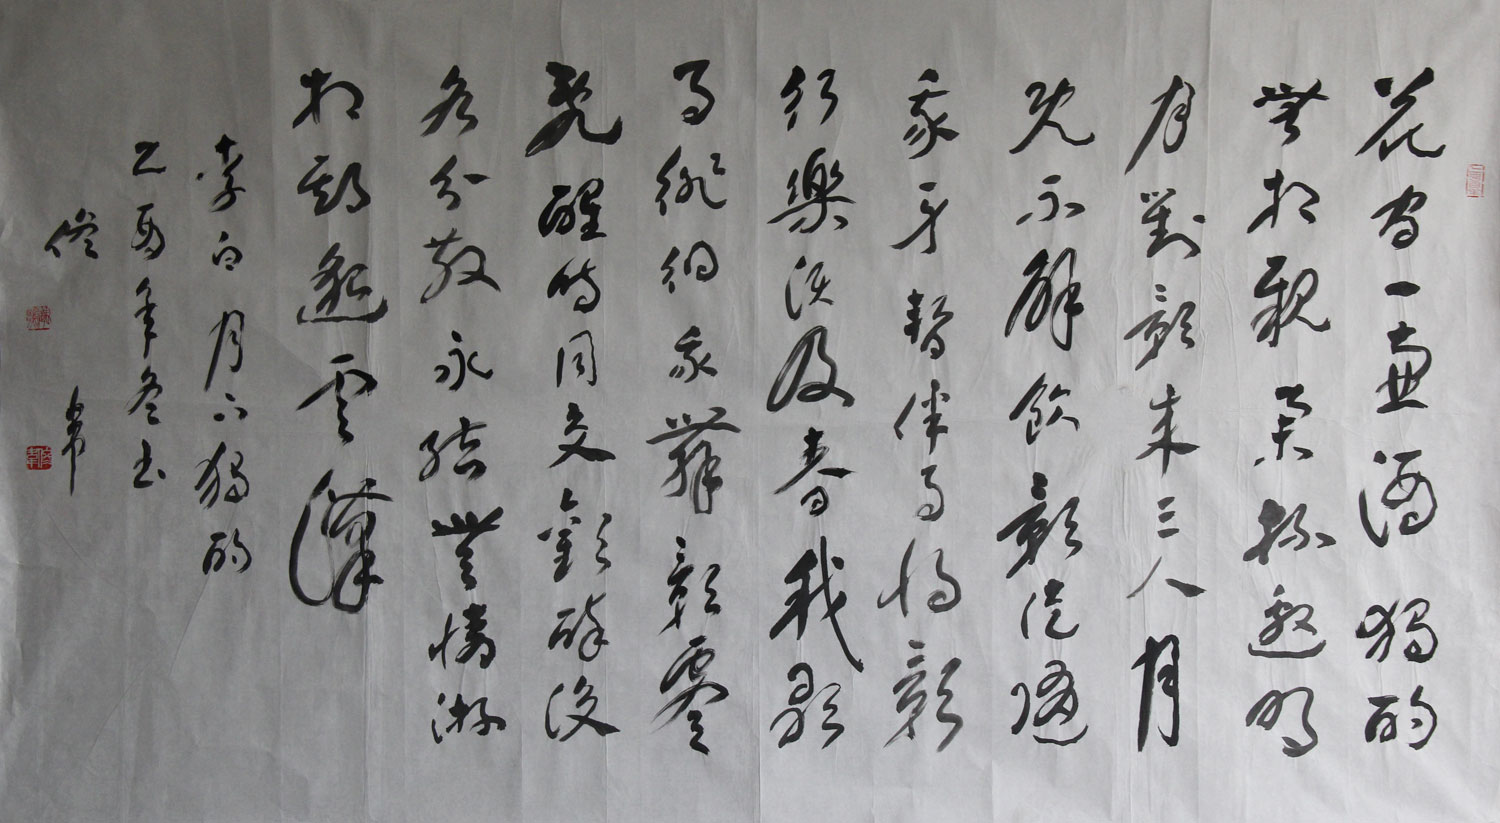 花間一壺酒獨酌
無相親舉杯邀明
月對影成三人月
既不解飲影徒隨
我身暫伴月將影
行樂須及春我歌
月徘徊我舞影零
亂醒時同交歡醉後
各分散永結無情遊
相期邈雲漢
李白月下獨酌
乙酉年冬書